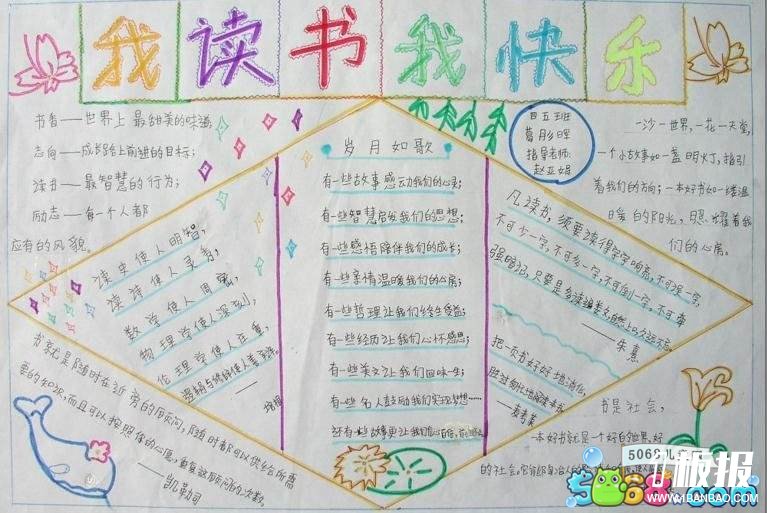 我读书我快乐
书香——世界上最甜美的味道;
志向——成长路上前进的目标;
读书——最智慧的行为;
励志——每个人都
应有的风貌。
读史使人明智,
读诗使人灵秀,
数学使人周密,
物理学使人深刻,
伦理学使人庄重,
逻辑
书就是随时在近旁的顾问,随时都可以供给你所需
要的知识,而且可以按照你的心愿,重复这顾问的次数。
——凯勒司
岁月如歌
有一些故事感动我们的心灵;
有一些智慧启发我们的思想;
有一些感悟陪伴我们的成长;
有一些亲情温暖我们的心房;
有一些哲理让我们终生受益;
有一些经历让我们心怀感恩;
有一些美文让我们回味一生;
有一些名人鼓励我们实现梦想……
还有一些故事更让我们
四五班
葛彤晖
指导老师:
赵亚娟
一沙一世界,一花一天堂,
一个小故事如一盏明灯,指引
着我们的方向;一本好书如一缕温
暖的阳光,照耀着我
们的心房。
凡读书,须要读得字字响亮,不可误一字,
不可少一字,不可多一字,不可倒一字,不可牵
强暗记,只要是多读遍数,自然上口,久远不忘。
——朱熹
把一页书好好地消化,
胜过匆忙地阅读一本书
——麦考莱
书是社会,
一本好书就是一个好的世界,好
的社会。
5068儿童网
5068.com
板报
WWW.41BANBAO.COM